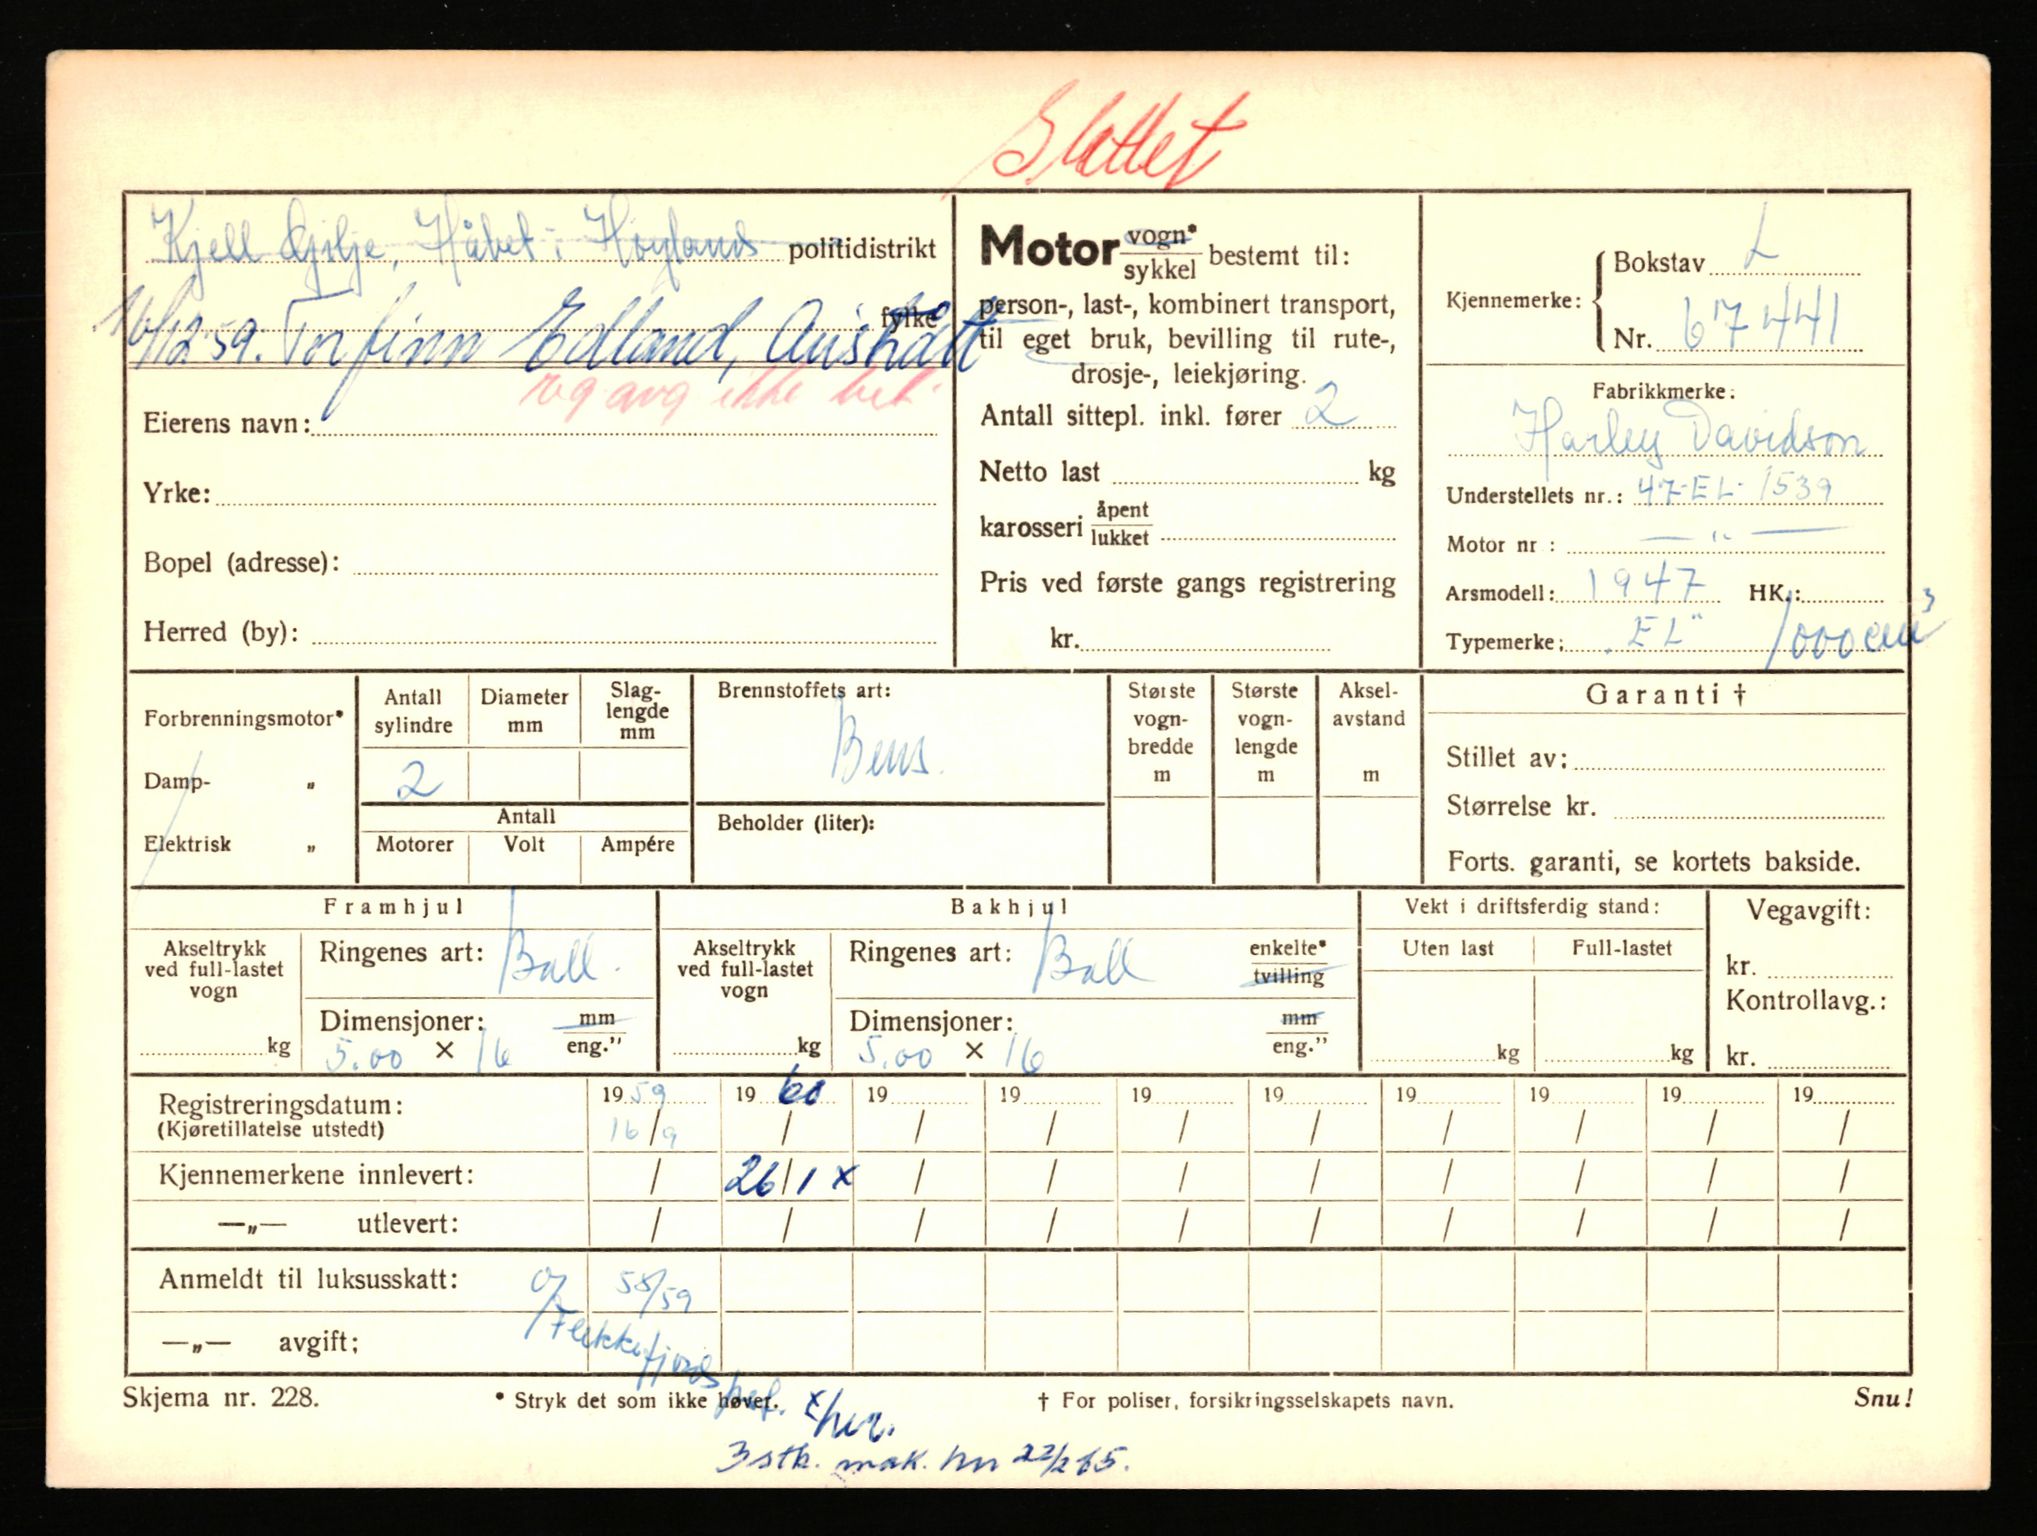 Slettet
Kjell Gilje, Håbet i Høylands politidistrikt
16/12 59. Torfinn Edland, Austrått fylke
og avg ikke bet.
Eierens navn:
Yrke:
Bopel (adresse):
Herred (by):
Motor vogn* sykkel bestemt til:
person-, last-, kombinert transport,
til eget bruk, bevilling til rute-,
drosje-, leiekjøring.
Antall sittepl. inkl. fører 2
Netto last kg
karosseri åpent lukket
Pris ved første gangs registrering
kr.
Kjennemerke: Bokstav L
Nr. 67441
Fabrikkmerke:
Harley Davidson
Understellets nr.: 47-EL-1539
Motor nr : — " —
Arsmodell: 1947 HK.:
Typemerke: "EL" 1000 cm³
Forbrenningsmotor*
Damp- „
Elektrisk „
Antall sylindre
Diameter mm
Slag-lengde mm
2
Antall
Motorer Volt Ampére
Brennstoffets art:
Bens.
Beholder (liter):
Største vogn-bredde m
Største vogn-lengde m
Aksel-avstand m
Garanti †
Stillet av:
Størrelse kr.
Forts. garanti, se kortets bakside.
Framhjul
Akseltrykk ved full-lastet vogn
kg
Ringenes art: Ball.
Dimensjoner: mm eng."
5.00 × 16
Bakhjul
Akseltrykk ved full-lastet vogn
kg
Ringenes art: Ball enkelte* tvilling
Dimensjoner: mm eng."
5.00 × 16
Vekt i driftsferdig stand:
Uten last Full-lastet
kg kg
Vegavgift:
kr.
Kontrollavg.:
kr.
Registreringsdatum: 19 59 19 60 19 19 19 19 19 19 19 19
(Kjøretillatelse utstedt) 16/9 / / / / / / / / /
Kjennemerkene innlevert: / 26/1 x / / / / / / / /
—„— utlevert: / / / / / / / / / /
Anmeldt til luksusskatt: 58/59
—„— avgift: Flekkefjords pol.
Skjema nr. 228. * Stryk det som ikke høver. † For poliser, forsikringsselskapets navn. Snu!
x her.
3 stk. mak. hn 22/2 65.